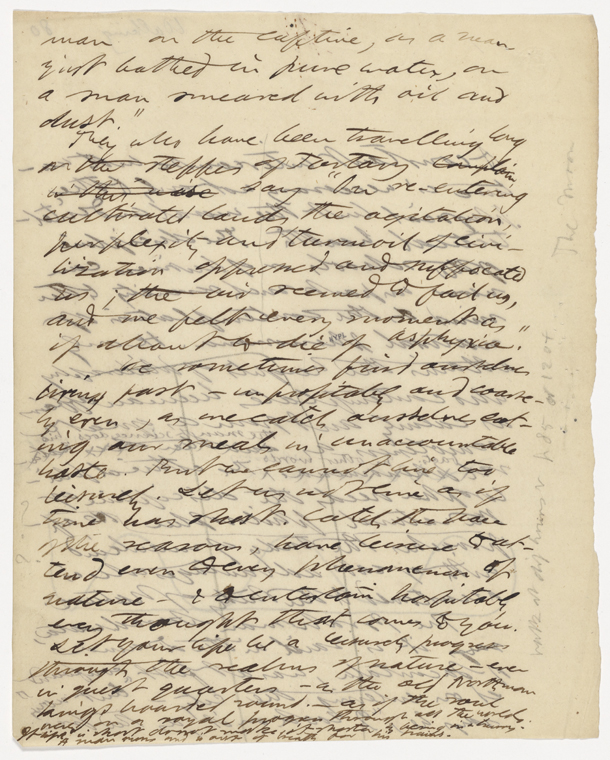 man on the captive, as a man
just bathed in pure water, on
a man smeared with oil and
dust"
They who have been travelling long
on the steppes of Tartary complain
in this wise say "On re-entering
cultivated lands the agitation,
perplexity and turmoil of civi-
lization oppressed and suffocated
us; the air seemed to fail us,
and we felt every moment as
if about to die of asphyxia."
We sometimes find ourselves
living fast - unprofitably and coarse-
ly even, as we catch ourselves eat-
ing our meals in unaccountable
haste. But we cannot live too
leisurely. Let us not live as if
time was short. Catch the pace
of the seasons, have leisure to at-
tend even to every phenomenon of
nature - & to entertain hospitably
every thought that comes to you.
Let your life be a leisurely progress
through the realms of nature - even
in guest quarters - as the old Northmen
kings boarded round - as if the soul
were on a royal progress through all the worlds.
If life is short do not make it shorter by being in a hurry.
A man runs and is out of breath
The Moon